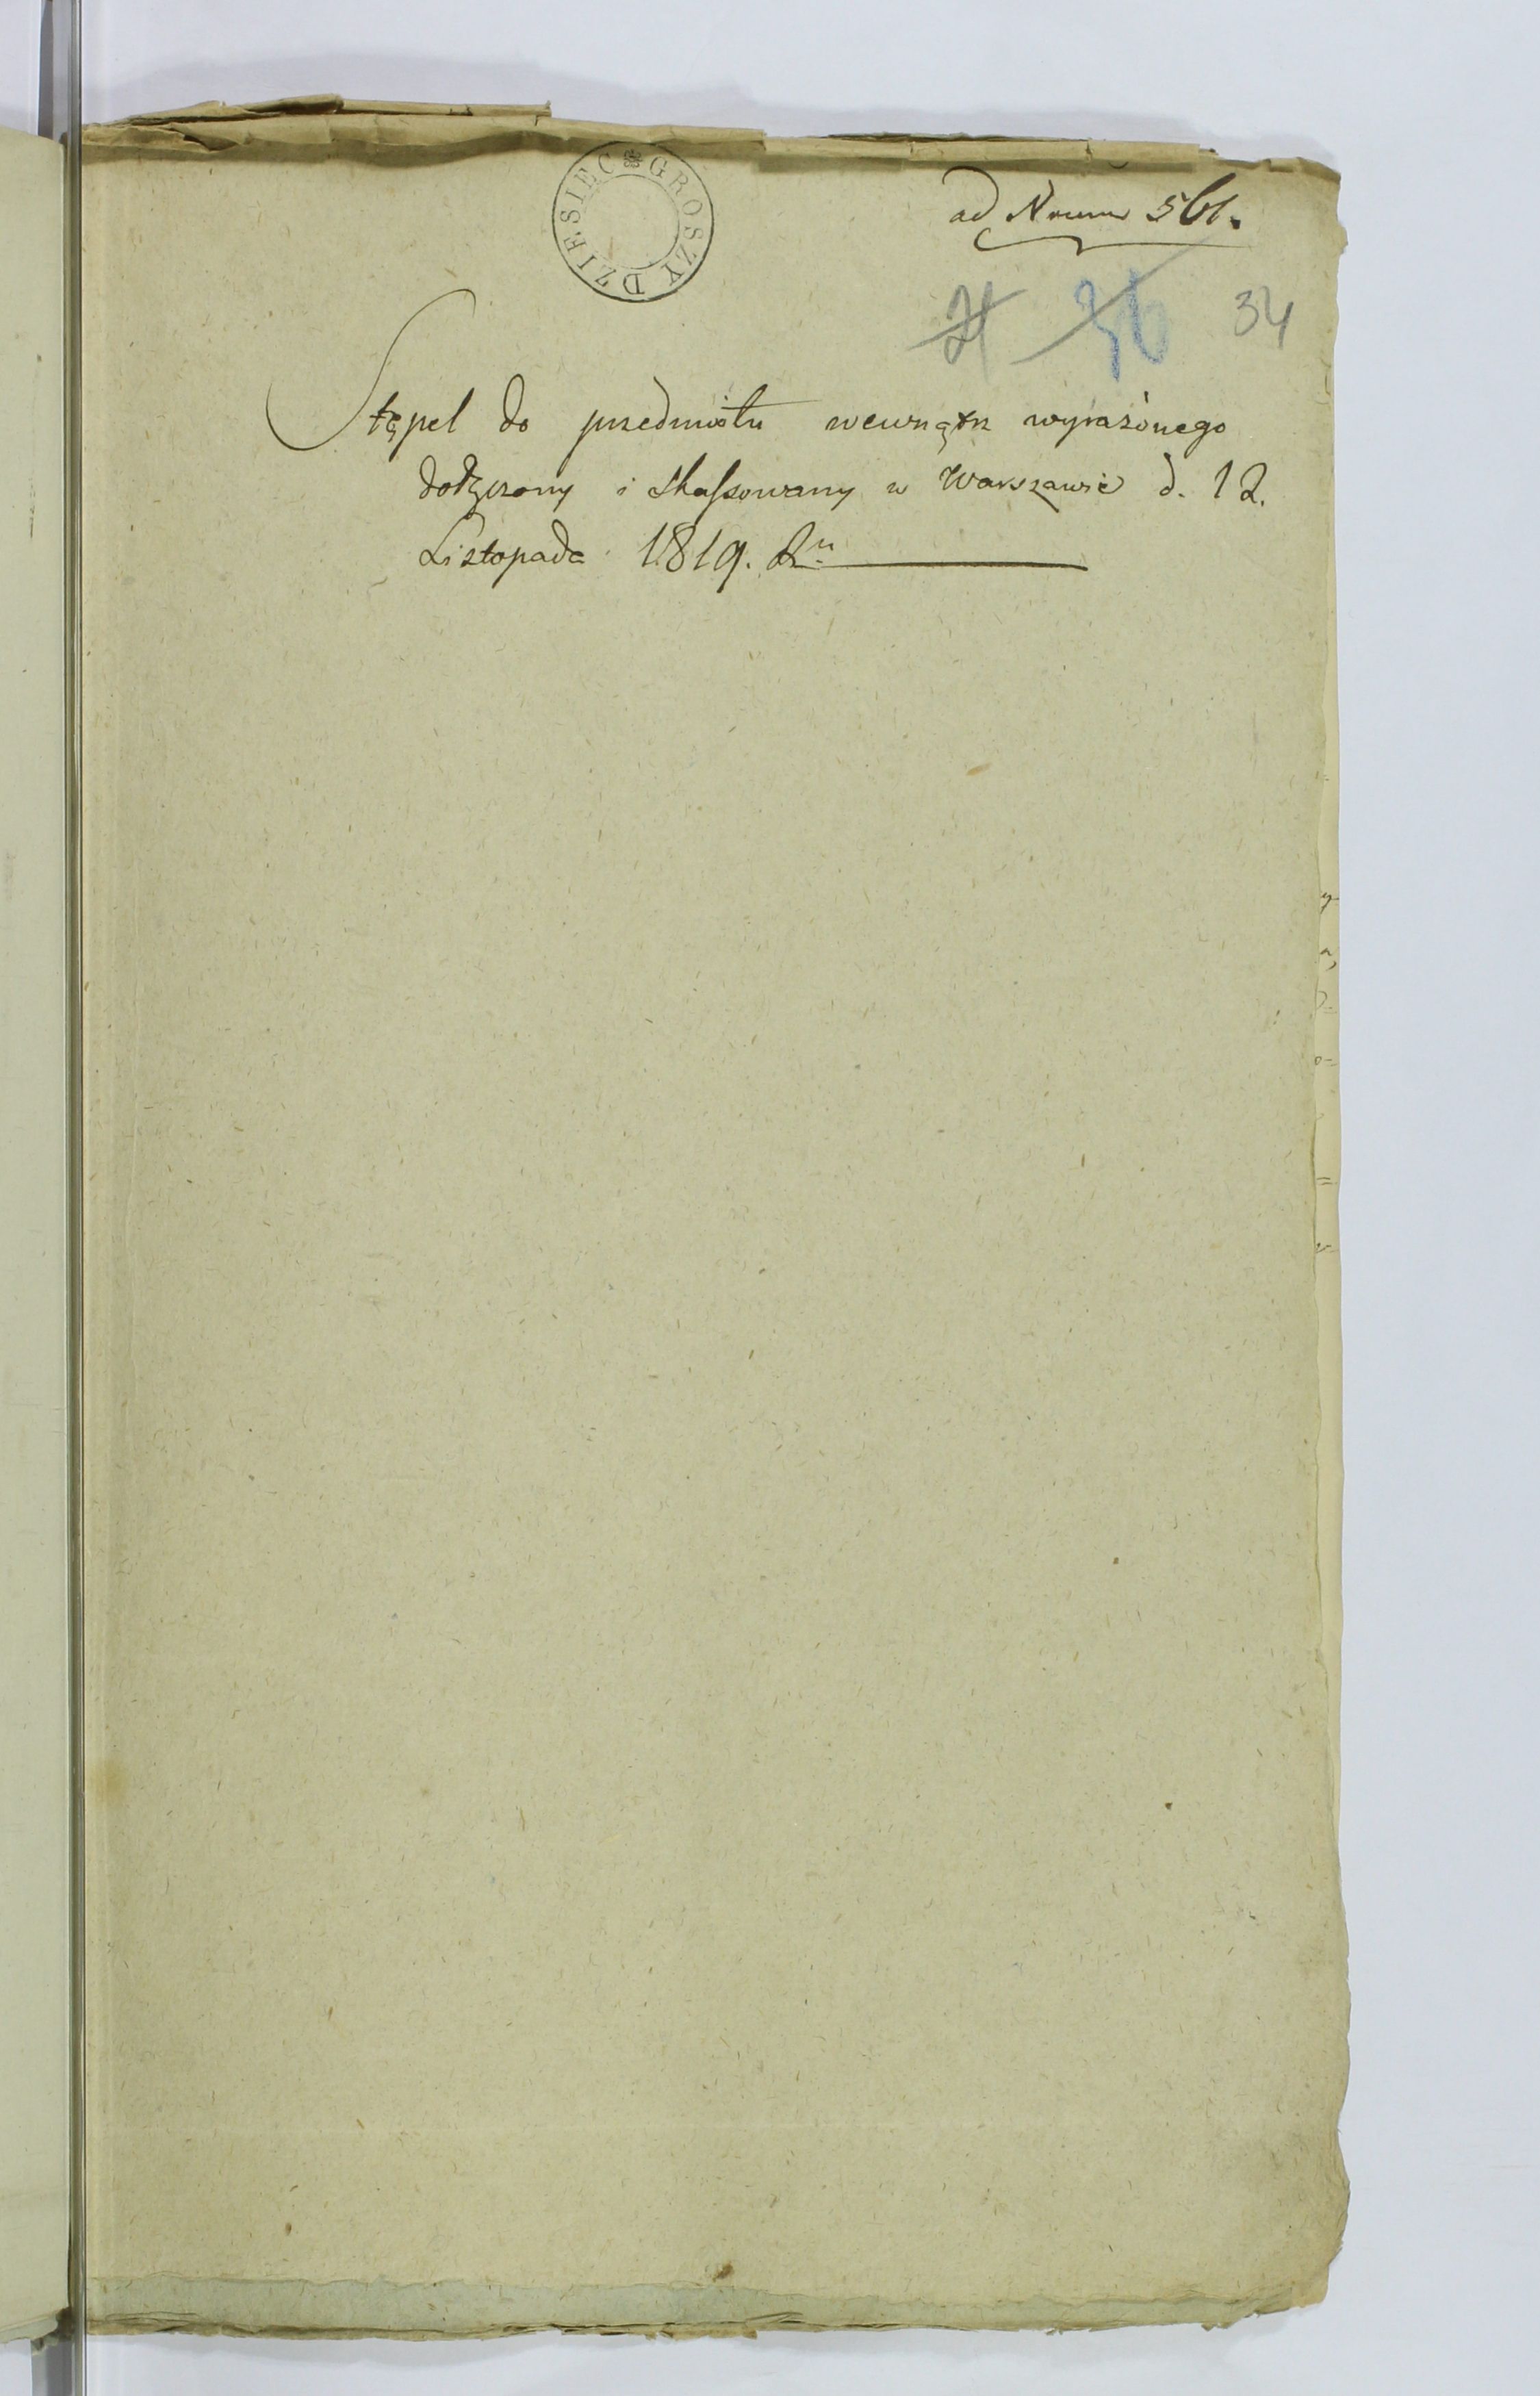 DZIESIEC GROSZY
ad Numer 561.
21 36 34
Stępel do przedmiotu wewnątrz wyrażonego
dołączony i skassowany w Warszawie d. 12.
Listopada 1819. Ru